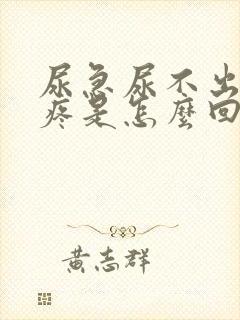 尿急尿不出
疼是怎麼回
黃志群